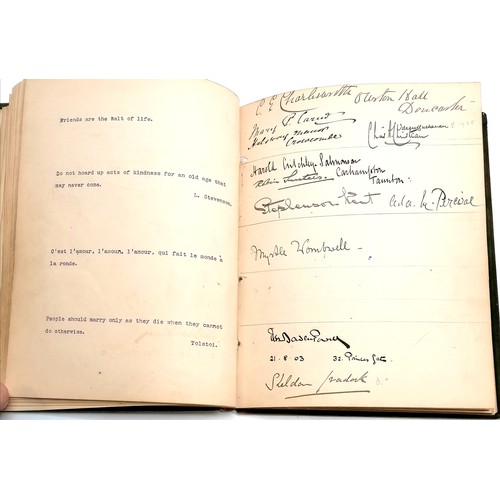 Friends are the Salt of life.
Do not hoard up acts of kindness for an old age that
may never come.
L. Stevenson.
C'est l'amour, l'amour, l'amour, qui fait le monde à
la ronde.
People should marry only as they die when they cannot
do otherwise.
Tolstoi.
C. E. Charlesworth Hall
Doncaster
Mary P.
Manor
Crowcombe
Harold Critchley Salmonson
Carhampton
Taunton.
Stephenson Kent Ada M. Percival
Myrtle Wombwell
Baden Powell
21.8.03 32. Princes Gate.
Sheldon Cradock